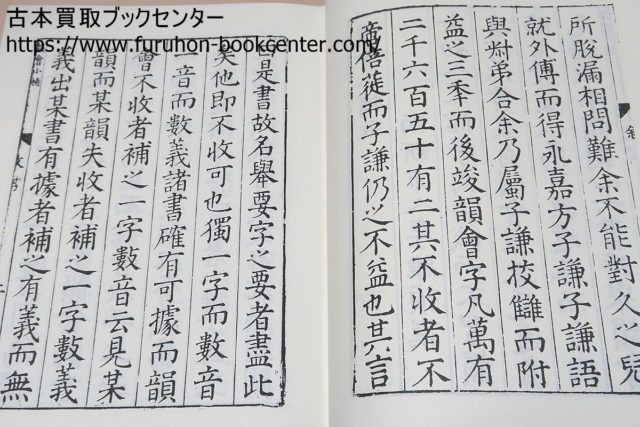 古本買取ブックセンター
https://www.furuhon-bookcenter.com/
所脫漏相問難余不能對久之兒
就外傅而得永嘉方子謙子謙語
與弟合余乃屬子謙挍讎而附
益之三秊而後竣韻會字凡萬有
二千六百五十有二其不收者不
啻倍蓰而子謙仍之不益也其言
曰是書故名舉要字之要者盡此
矣他即不收可也獨一字而數音
一音而數義諸書確有可據而韻
會不收者補之一字數音云見某
韻而某韻失收者補之一字數義
義出某書有據者補之有義而無
會小補